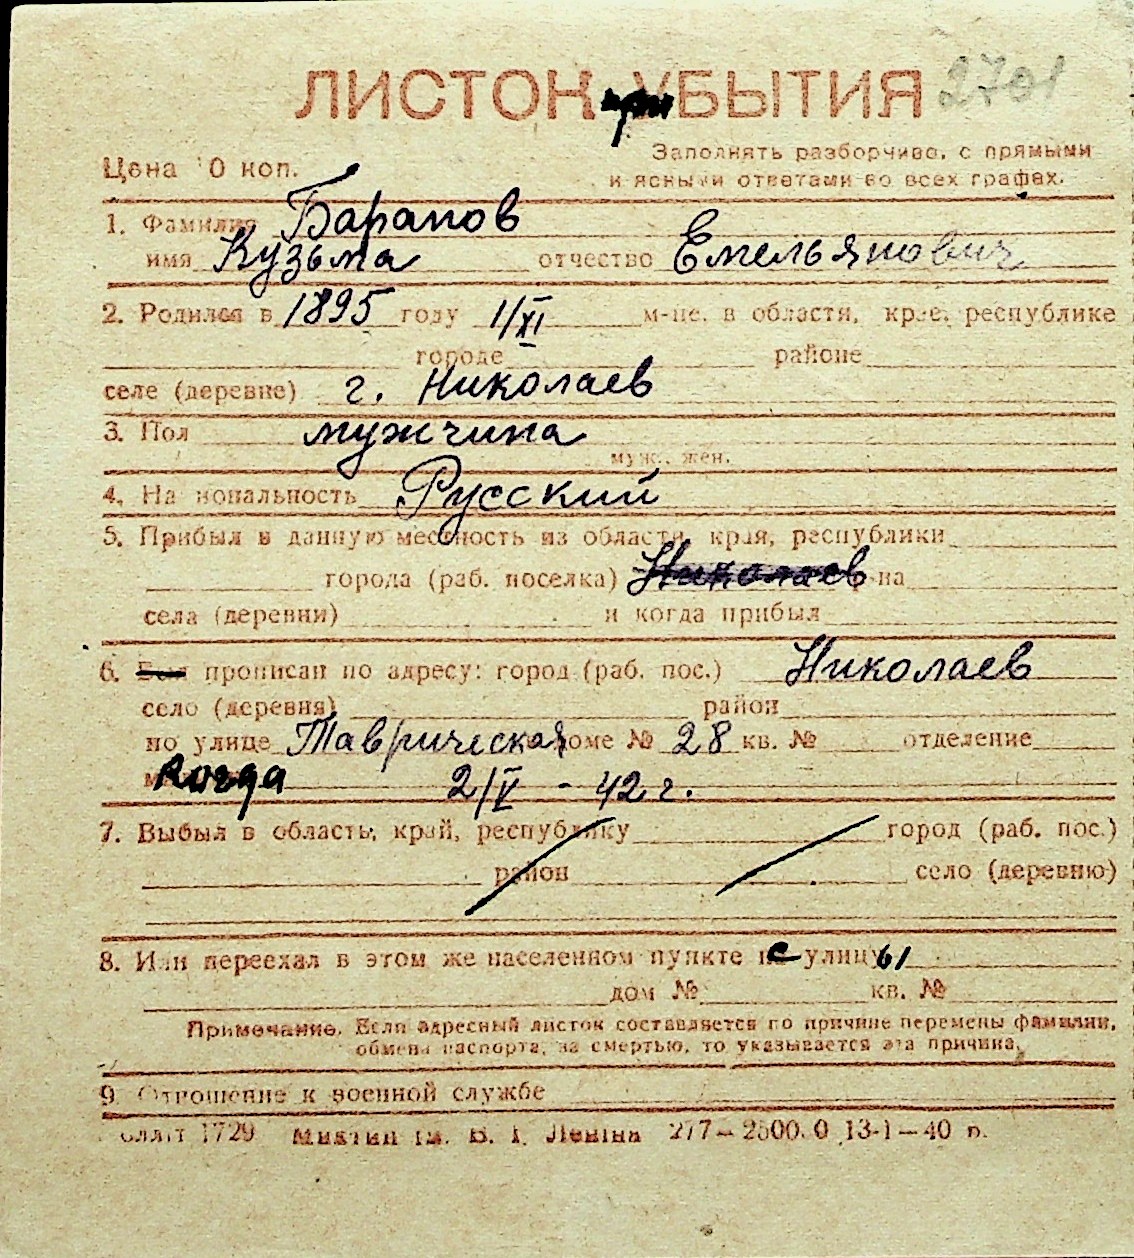 ЛИСТОК при УБЫТИЯ 2701
Цена 10 коп.
Заполнять разборчиво, с прямыми
и ясными ответами во всех графах.
1. Фамилия Баранов
имя Кузьма отчество Емельянович
2. Родился в 1895 году 1/XI м-це, в области, крае, республике
городе районе
селе (деревне) г. Николаев
3. Пол мужчина
муж., жен.
4. Национальность Русский
5. Прибыл в данную местность из области, края, республики
города (раб. поселка) Николаев на
села (деревни) и когда прибыл
6. Был прописан по адресу: город (раб. пос.) Николаев
село (деревня) район
по улице Таврическая доме № 28 кв. № отделение
Когда 2/V - 42 г.
7. Выбыл в область, край, республику город (раб. пос.)
район село (деревню)
8. Или переехал в этом же населенном пункте с улицы
дом № кв. №
Примечание. Если адресный листок составляется по причине перемены фамилии,
обмена паспорта, за смертью, то указывается эта причина.
9. Отношение к военной службе
1729 ім. В. І. Леніна 277—2500.0 13-1—40 р.